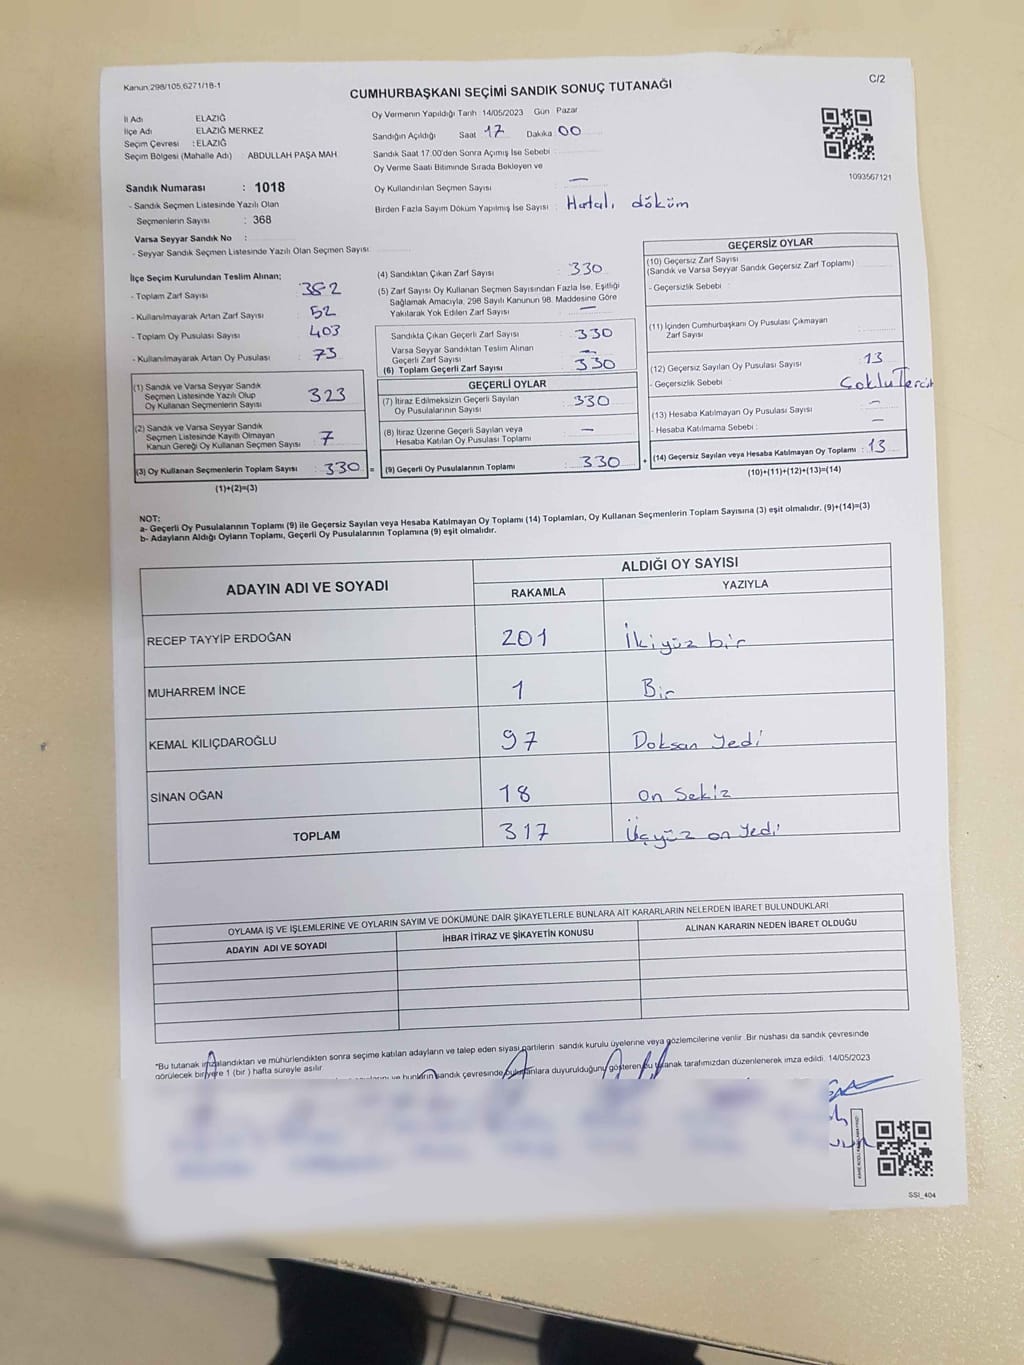 Kanun:298/105,6271/18-1
C/2
CUMHURBAŞKANI SEÇİMİ SANDIK SONUÇ TUTANAĞI
İl Adı ELAZIĞ
İlçe Adı ELAZIĞ MERKEZ
Seçim Çevresi : ELAZIĞ
Seçim Bölgesi (Mahalle Adı) : ABDULLAH PAŞA MAH.
Oy Vermenin Yapıldığı Tarih 14/05/2023 Gün Pazar
Sandığın Açıldığı Saat 17 Dakika 00
Sandık Saat 17:00'den Sonra Açımış İse Sebebi :
Oy Verme Saati Bitiminde Sırada Bekleyen ve
Oy Kullandırılan Seçmen Sayısı : —
Birden Fazla Sayım Döküm Yapılmış İse Sayısı : Hatalı döküm
1093567121
Sandık Numarası : 1018
- Sandık Seçmen Listesinde Yazılı Olan
Seçmenlerin Sayısı : 368
Varsa Seyyar Sandık No :
- Seyyar Sandık Seçmen Listesinde Yazılı Olan Seçmen Sayısı:
İlçe Seçim Kurulundan Teslim Alınan;
- Toplam Zarf Sayısı : 382
- Kullanılmayarak Artan Zarf Sayısı : 52
- Toplam Oy Pusulası Sayısı : 403
- Kullanılmayarak Artan Oy Pusulası : 73
(1) Sandık ve Varsa Seyyar Sandık
Seçmen Listesinde Yazılı Olup
Oy Kullanan Seçmenlerin Sayısı : 323
(2) Sandık ve Varsa Seyyar Sandık
Seçmen Listesinde Kayıtlı Olmayan
Kanun Gereği Oy Kullanan Seçmen Sayısı : 7
(3) Oy Kullanan Seçmenlerin Toplam Sayısı : 330 =
(1)+(2)=(3)
(4) Sandıktan Çıkan Zarf Sayısı : 330
(5) Zarf Sayısı Oy Kullanan Seçmen Sayısından Fazla İse, Eşitliği
Sağlamak Amacıyla, 298 Sayılı Kanunun 98. Maddesine Göre
Yakılarak Yok Edilen Zarf Sayısı : —
Sandıkta Çıkan Geçerli Zarf Sayısı : 330
Varsa Seyyar Sandıktan Teslim Alınan
Geçerli Zarf Sayısı : —
(6) Toplam Geçerli Zarf Sayısı : 330
GEÇERLİ OYLAR
(7) İtiraz Edilmeksizin Geçerli Sayılan
Oy Pusulalarının Sayısı : 330
(8) İtiraz Üzerine Geçerli Sayılan veya
Hesaba Katılan Oy Pusulası Toplamı : —
(9) Geçerli Oy Pusulalarının Toplamı : 330 +
GEÇERSİZ OYLAR
(10) Geçersiz Zarf Sayısı
(Sandık ve Varsa Seyyar Sandık Geçersiz Zarf Toplamı)
- Geçersizlik Sebebi :
(11) İçinden Cumhurbaşkanı Oy Pusulası Çıkmayan
Zarf Sayısı :
(12) Geçersiz Sayılan Oy Pusulası Sayısı : 13
- Geçersizlik Sebebi : Çoklu Tercih
(13) Hesaba Katılmayan Oy Pusulası Sayısı : —
- Hesaba Katılmama Sebebi : —
(14) Geçersiz Sayılan veya Hesaba Katılmayan Oy Toplamı : 13
(10)+(11)+(12)+(13)=(14)
NOT:
a- Geçerli Oy Pusulalarının Toplamı (9) ile Geçersiz Sayılan veya Hesaba Katılmayan Oy Toplamı (14) Toplamları, Oy Kullanan Seçmenlerin Toplam Sayısına (3) eşit olmalıdır. (9)+(14)=(3)
b- Adayların Aldığı Oyların Toplamı, Geçerli Oy Pusulalarının Toplamına (9) eşit olmalıdır.
ADAYIN ADI VE SOYADI ALDIĞI OY SAYISI
RAKAMLA YAZIYLA
RECEP TAYYİP ERDOĞAN 201 İkiyüz bir
MUHARREM İNCE 1 Bir
KEMAL KILIÇDAROĞLU 97 Doksan Yedi
SİNAN OĞAN 18 On Sekiz
TOPLAM 317 Üçyüz on Yedi
OYLAMA İŞ VE İŞLEMLERİNE VE OYLARIN SAYIM VE DÖKÜMÜNE DAİR ŞİKAYETLERLE BUNLARA AİT KARARLARIN NELERDEN İBARET BULUNDUKLARI
ADAYIN ADI VE SOYADI İHBAR İTİRAZ VE ŞİKAYETİN KONUSU ALINAN KARARIN NEDEN İBARET OLDUĞU
*Bu tutanak imzalandıktan ve mühürlendikten sonra seçime katılan adayların ve talep eden siyasi partilerin sandık kurulu üyelerine veya gözlemcilerine verilir. Bir nüshası da sandık çevresinde
görülecek bir yere 1 (bir) hafta süreyle asılır.
ve bunların sandık çevresinde bulunanlara duyurulduğunu gösteren bu tutanak tarafımızdan düzenlenerek imza edildi. 14/05/2023
SSİ_404